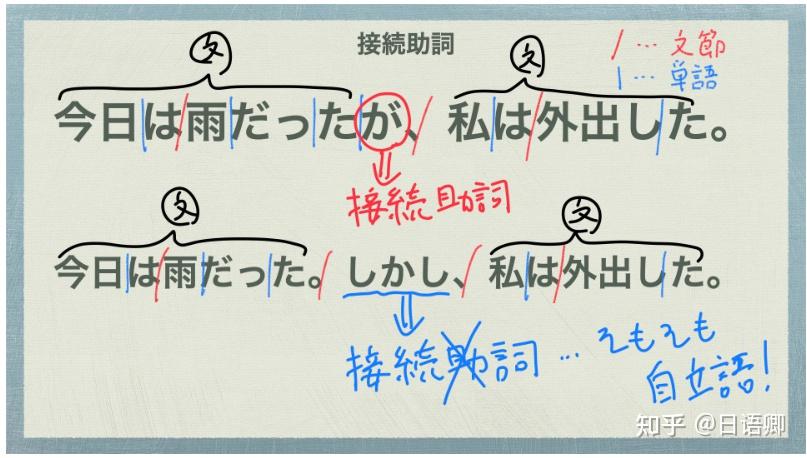 接続助詞
/ … 文節
| … 単語
文 文
今日は雨だったが、私は外出した。
接続助詞
文 文
今日は雨だった。しかし、私は外出した。
接続助詞 … そもそも
自立語!
知乎 @日语卿